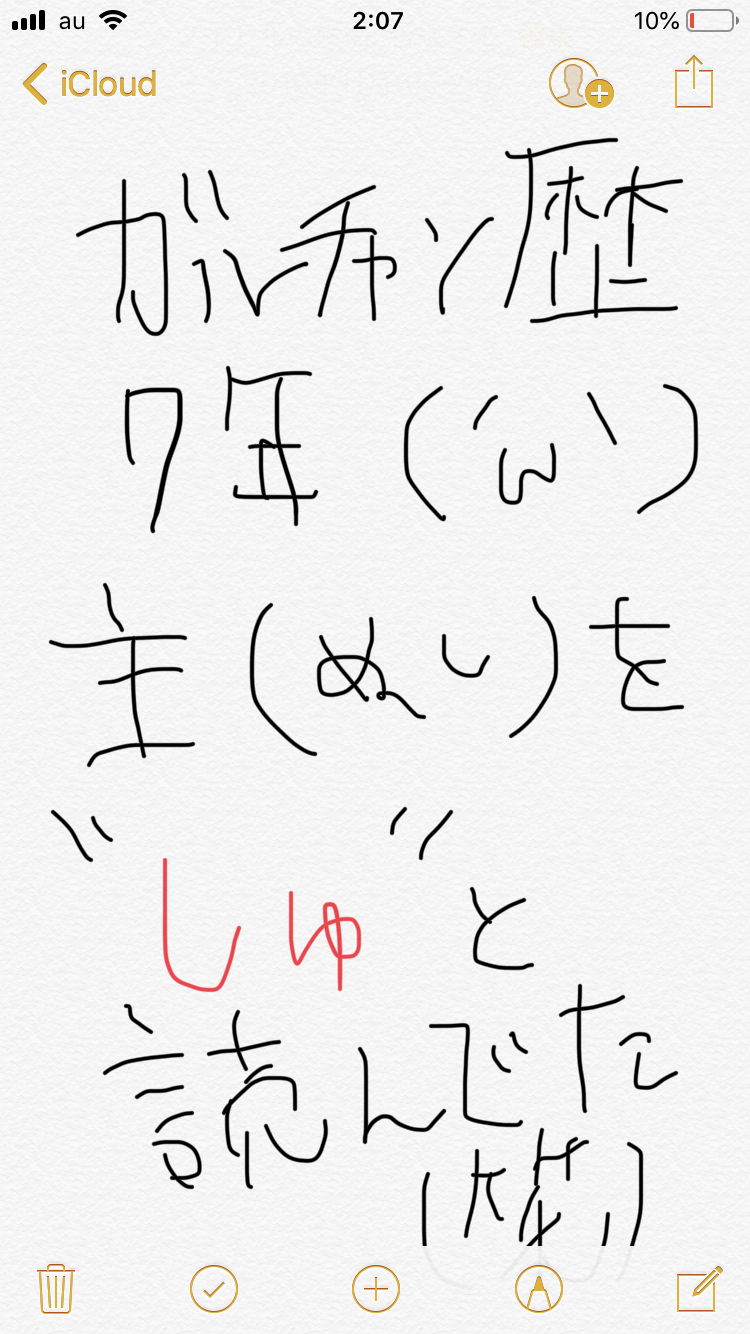 au 2:07 10%
iCloud
ガルチャン歴
7年 (´ω`)
主(ぬし)を
"しゅ"と
読んでた
(笑)